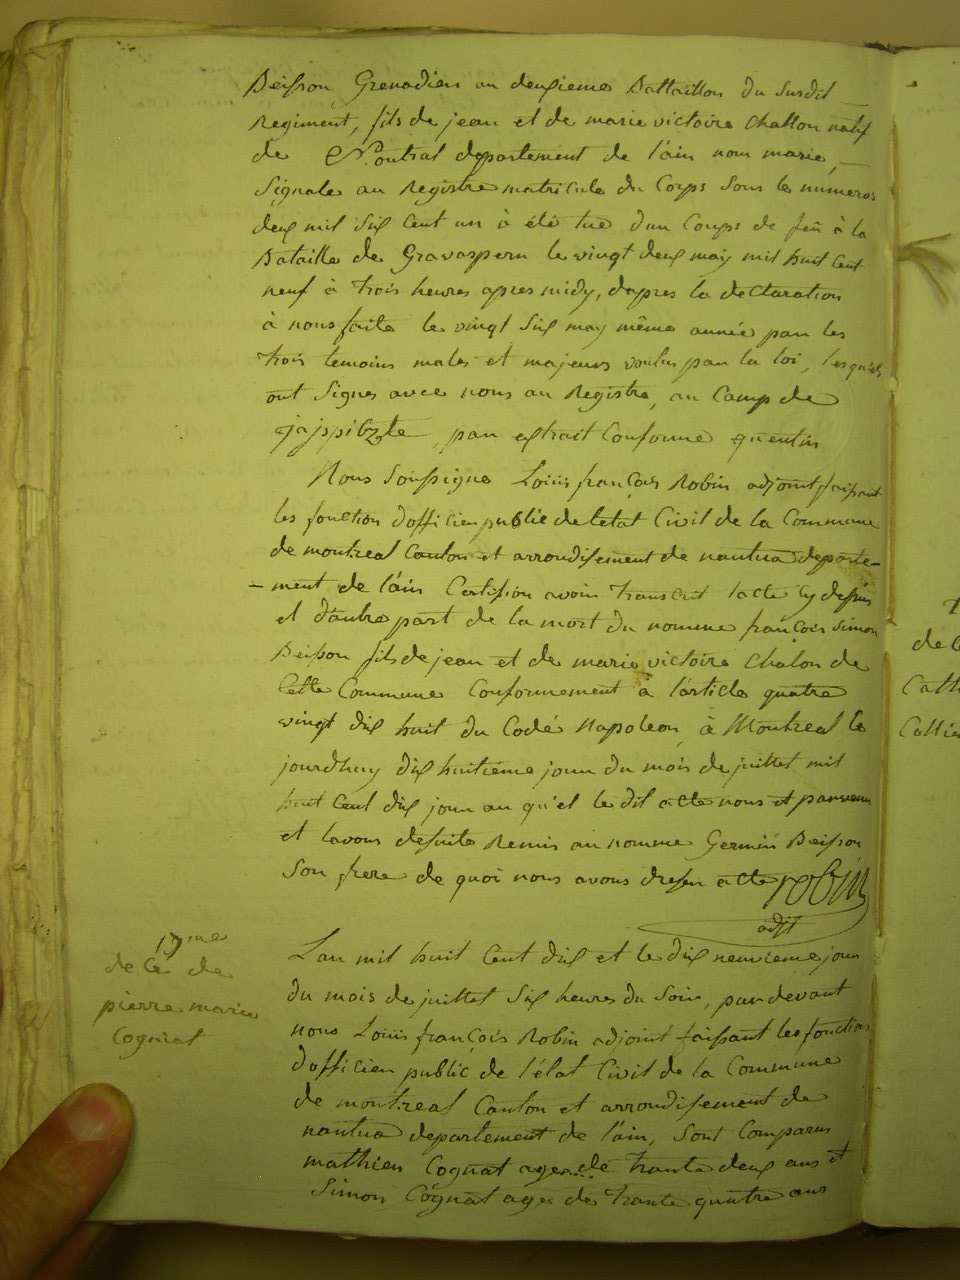 Beisson Grenadier au deuxieme Battaillon du susdit
Regiment, fils de jean et de marie victoire Challon natif
de Montreal departement de l'ain non marie,
Signale au Registre matricule du Corps Sous le numeros
deux mil six Cent un à été tué d'un Coups de feü à la
Bataille de Gravaspern le vingt deux may mil huit Cent
neuf à trois heures apres midy, dapres la declaration
à nous faite le vingt six may même année par les
trois temoins males et majeurs voulus par la loi, lesquels
ont Signes avec nous au Registre, au Camp de
par extrait Conforme quentin
Nous Soussigne Louis françois Robin adjoint faisant
les fonction dofficier public de letat Civil de la Commune
de montreal Canton et arrondissement de nantua departe-
-ment de l'ain Certifion avoir transcrit lacte cy dessus
et d'autre part de la mort du nomme françois Simon
Beisson fils de jean et de marie victoire Chalon de
Cette Commune Conformement à l'article quatre
vingt dix huit du Codé Napoleon, à Montreal le
jourdhuy dix huitième jour du mois de juillet mil
huit Cent dix jour au qu'el le dit acte nous et parvenu
et lavons desuite Remis au nomme Germin Beisson
Son frere de quoi nous avons dressé acte robin
adjt
17me
de Ce de
pierre marie
Cognat
Lan mil huit Cent dix et le dix neuvieme jour
du mois de juillet six heures du Soir, par devant
nous Louis françois Robin adjoint faissant les fonction
d'officier public de l'état Civil de la Commune
de montreal Canton et arrondissement de
nantua departement de l'ain, Sont Comparus
mathieu Cognat agee de trante deux ans et
Simon Cognat age de trante quatre ans
de
Cath